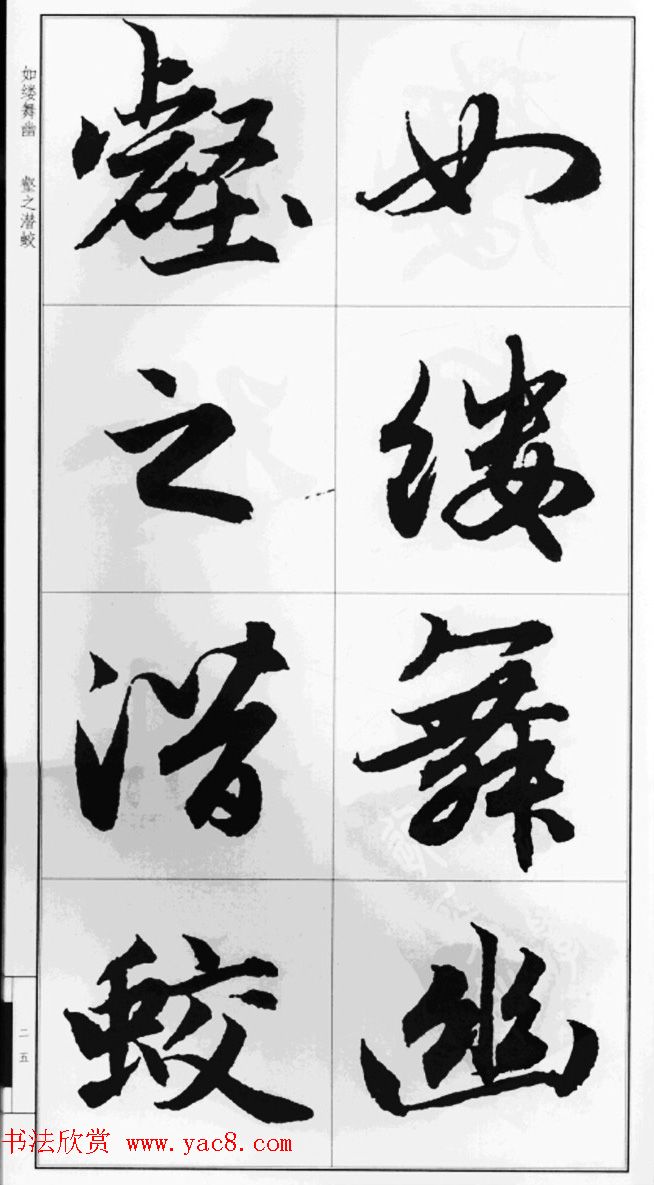 如缕舞幽
壑之潜蛟
如缕舞幽 壑之潜蛟
二五
书法欣赏 www.yac8.com